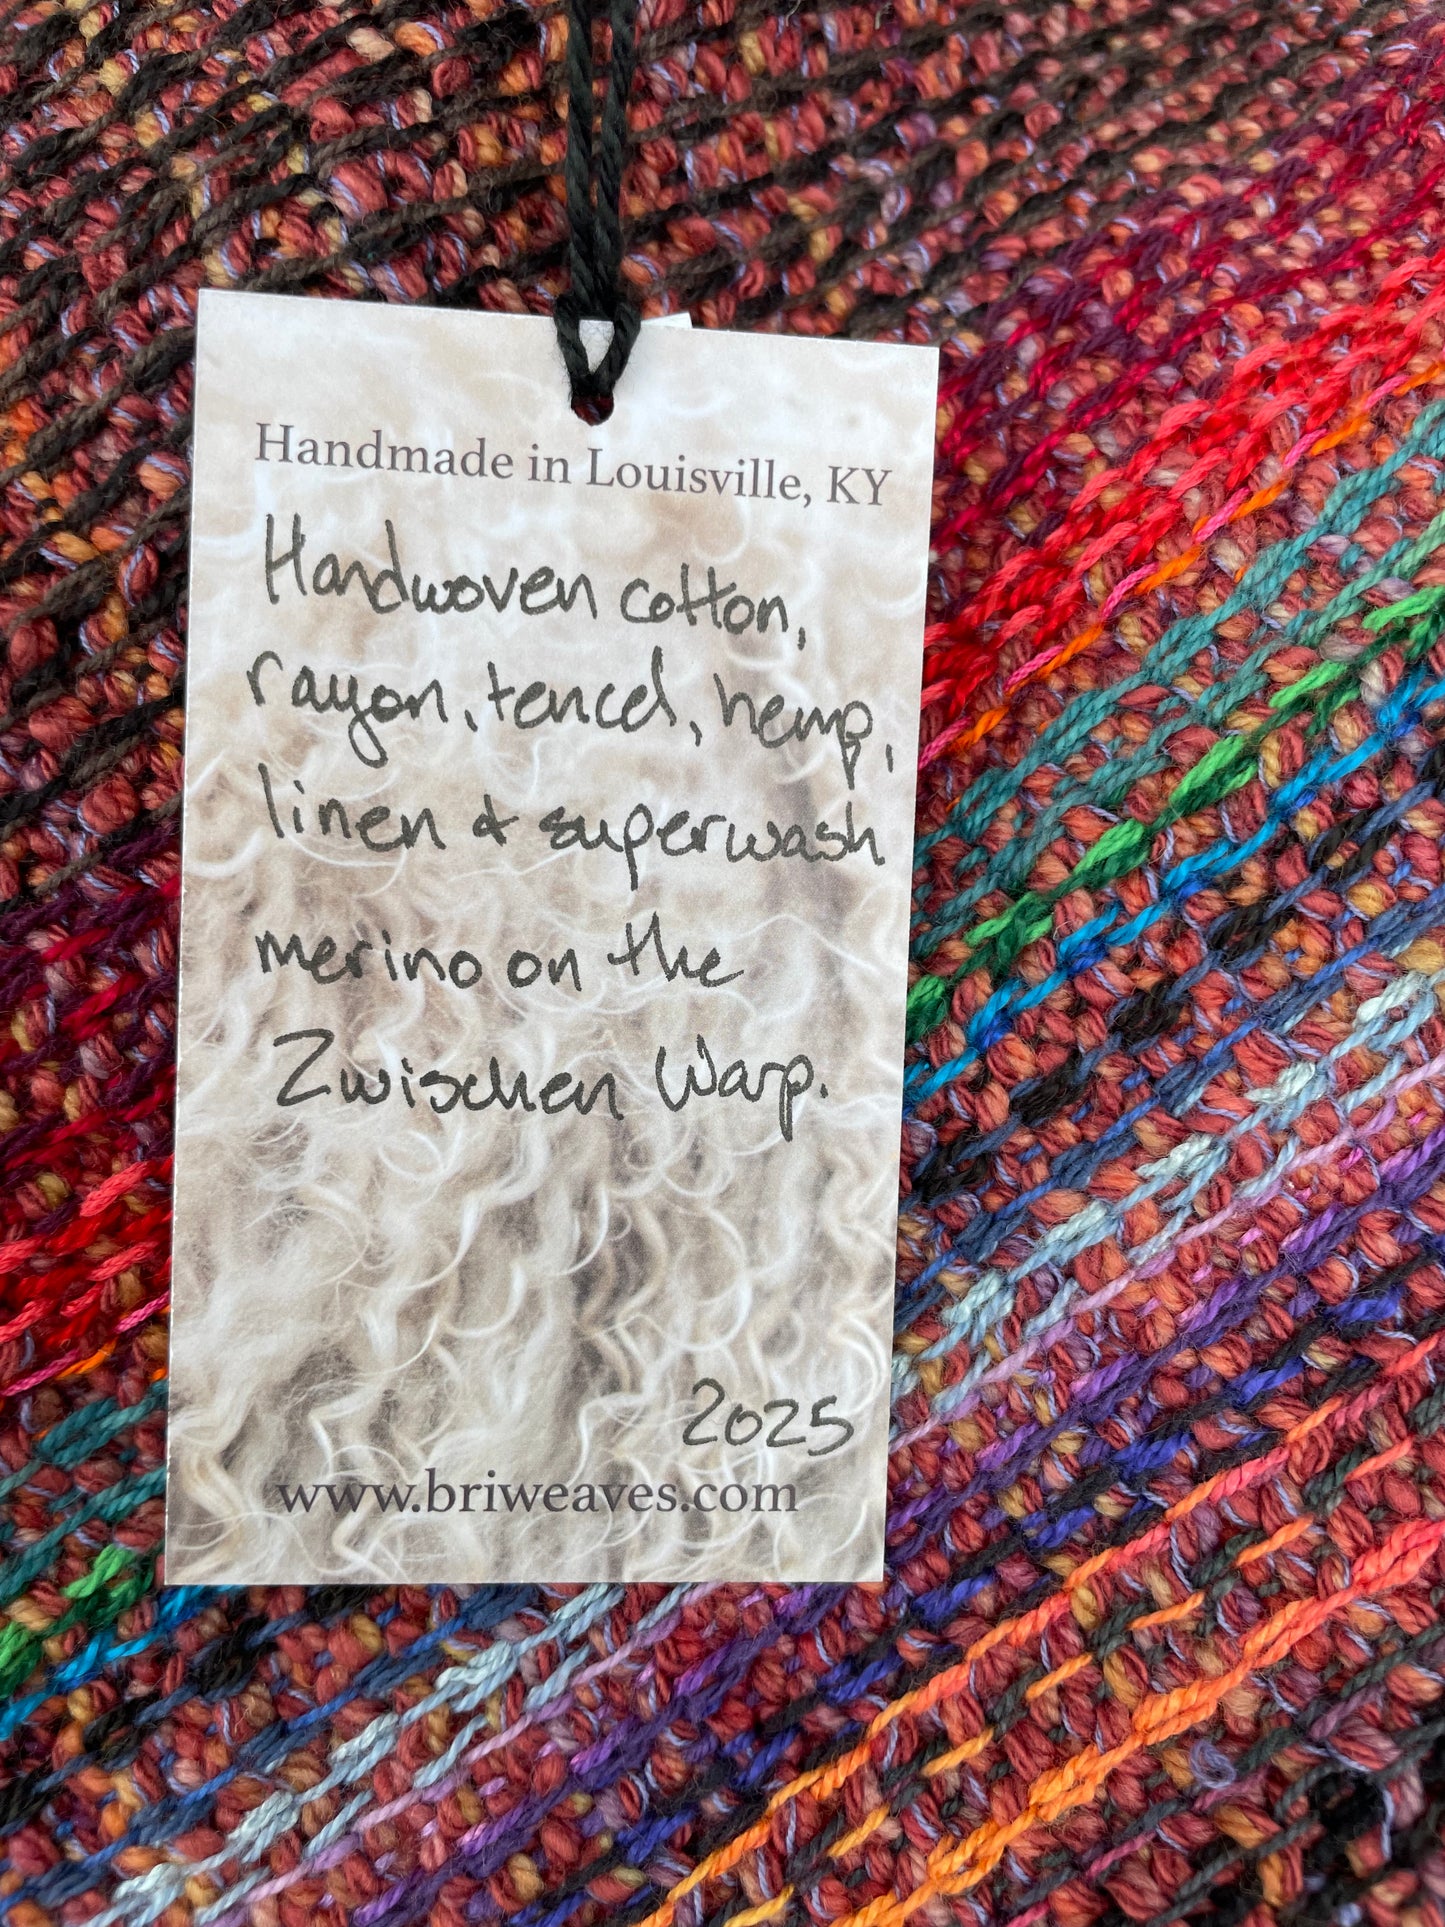 Handmade in Louisville, KY
Handwoven cotton,
rayon, tencel, hemp,
linen & superwash
merino on the
Zwischen Warp.
2025
www.briweaves.com